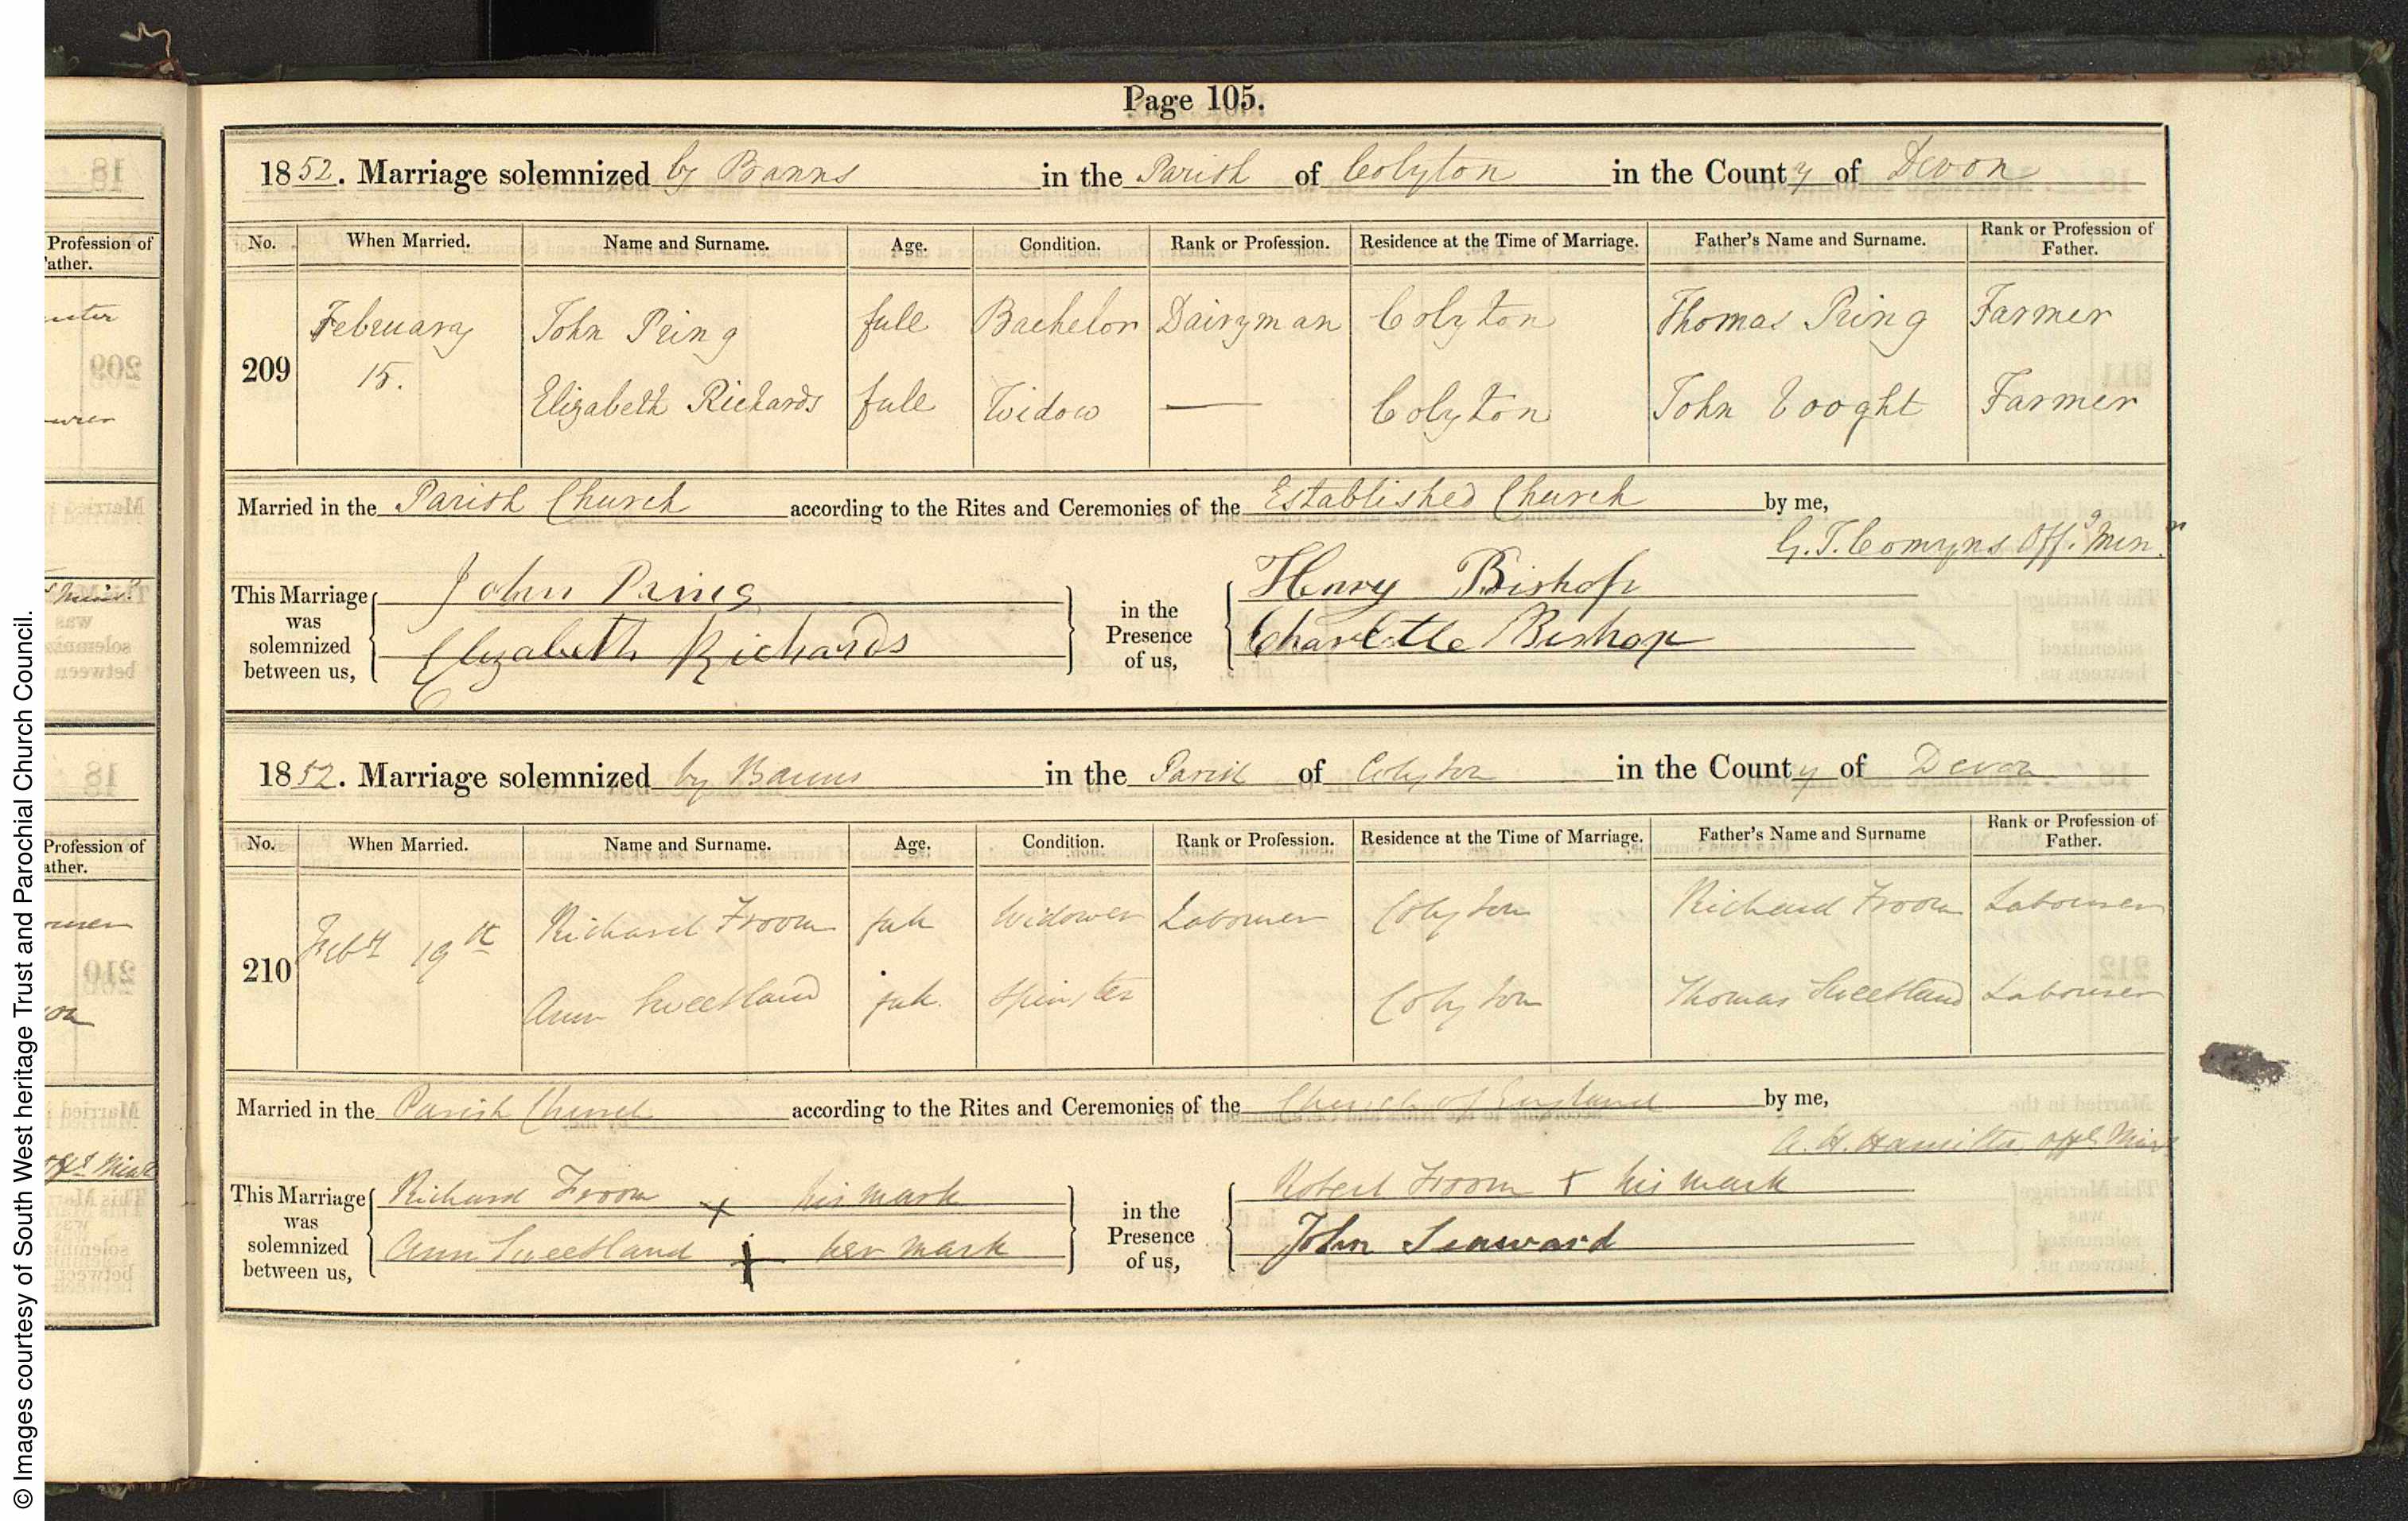 Page 105.
1852. Marriage solemnized by Banns in the Parish of Colyton in the County of Devon
No. When Married. Name and Surname. Age. Condition. Rank or Profession. Residence at the Time of Marriage. Father's Name and Surname. Rank or Profession of Father.
209 February 15. John Pring full Bachelor Dairyman Colyton Thomas Pring Farmer
Elizabeth Richards full Widow — Colyton John Vooght Farmer
Married in the Parish Church according to the Rites and Ceremonies of the Established Church by me,
G. T. Comyns Off.g Min.r
This Marriage was solemnized between us, John Pring in the Presence of us, Henry Bishop
Elizabeth Richards Charlotte Bishop
1852. Marriage solemnized by Banns in the Parish of Colyton in the County of Devon
No. When Married. Name and Surname. Age. Condition. Rank or Profession. Residence at the Time of Marriage. Father's Name and Surname Rank or Profession of Father.
210 Feby 19th Richard Froom full Widower Labourer Colyton Richard Froom Labourer
Ann Sweetland full Spinster Colyton Thomas Sweetland Labourer
Married in the Parish Church according to the Rites and Ceremonies of the Church of England by me,
A. H. Hamilton, Offg Minr
This Marriage was solemnized between us, Richard Froom x his mark in the Presence of us, Robert Froom x his mark
Ann Sweetland + her mark John Seaward
© Images courtesy of South West heritage Trust and Parochial Church Council.
Profession of
ather.
209
210